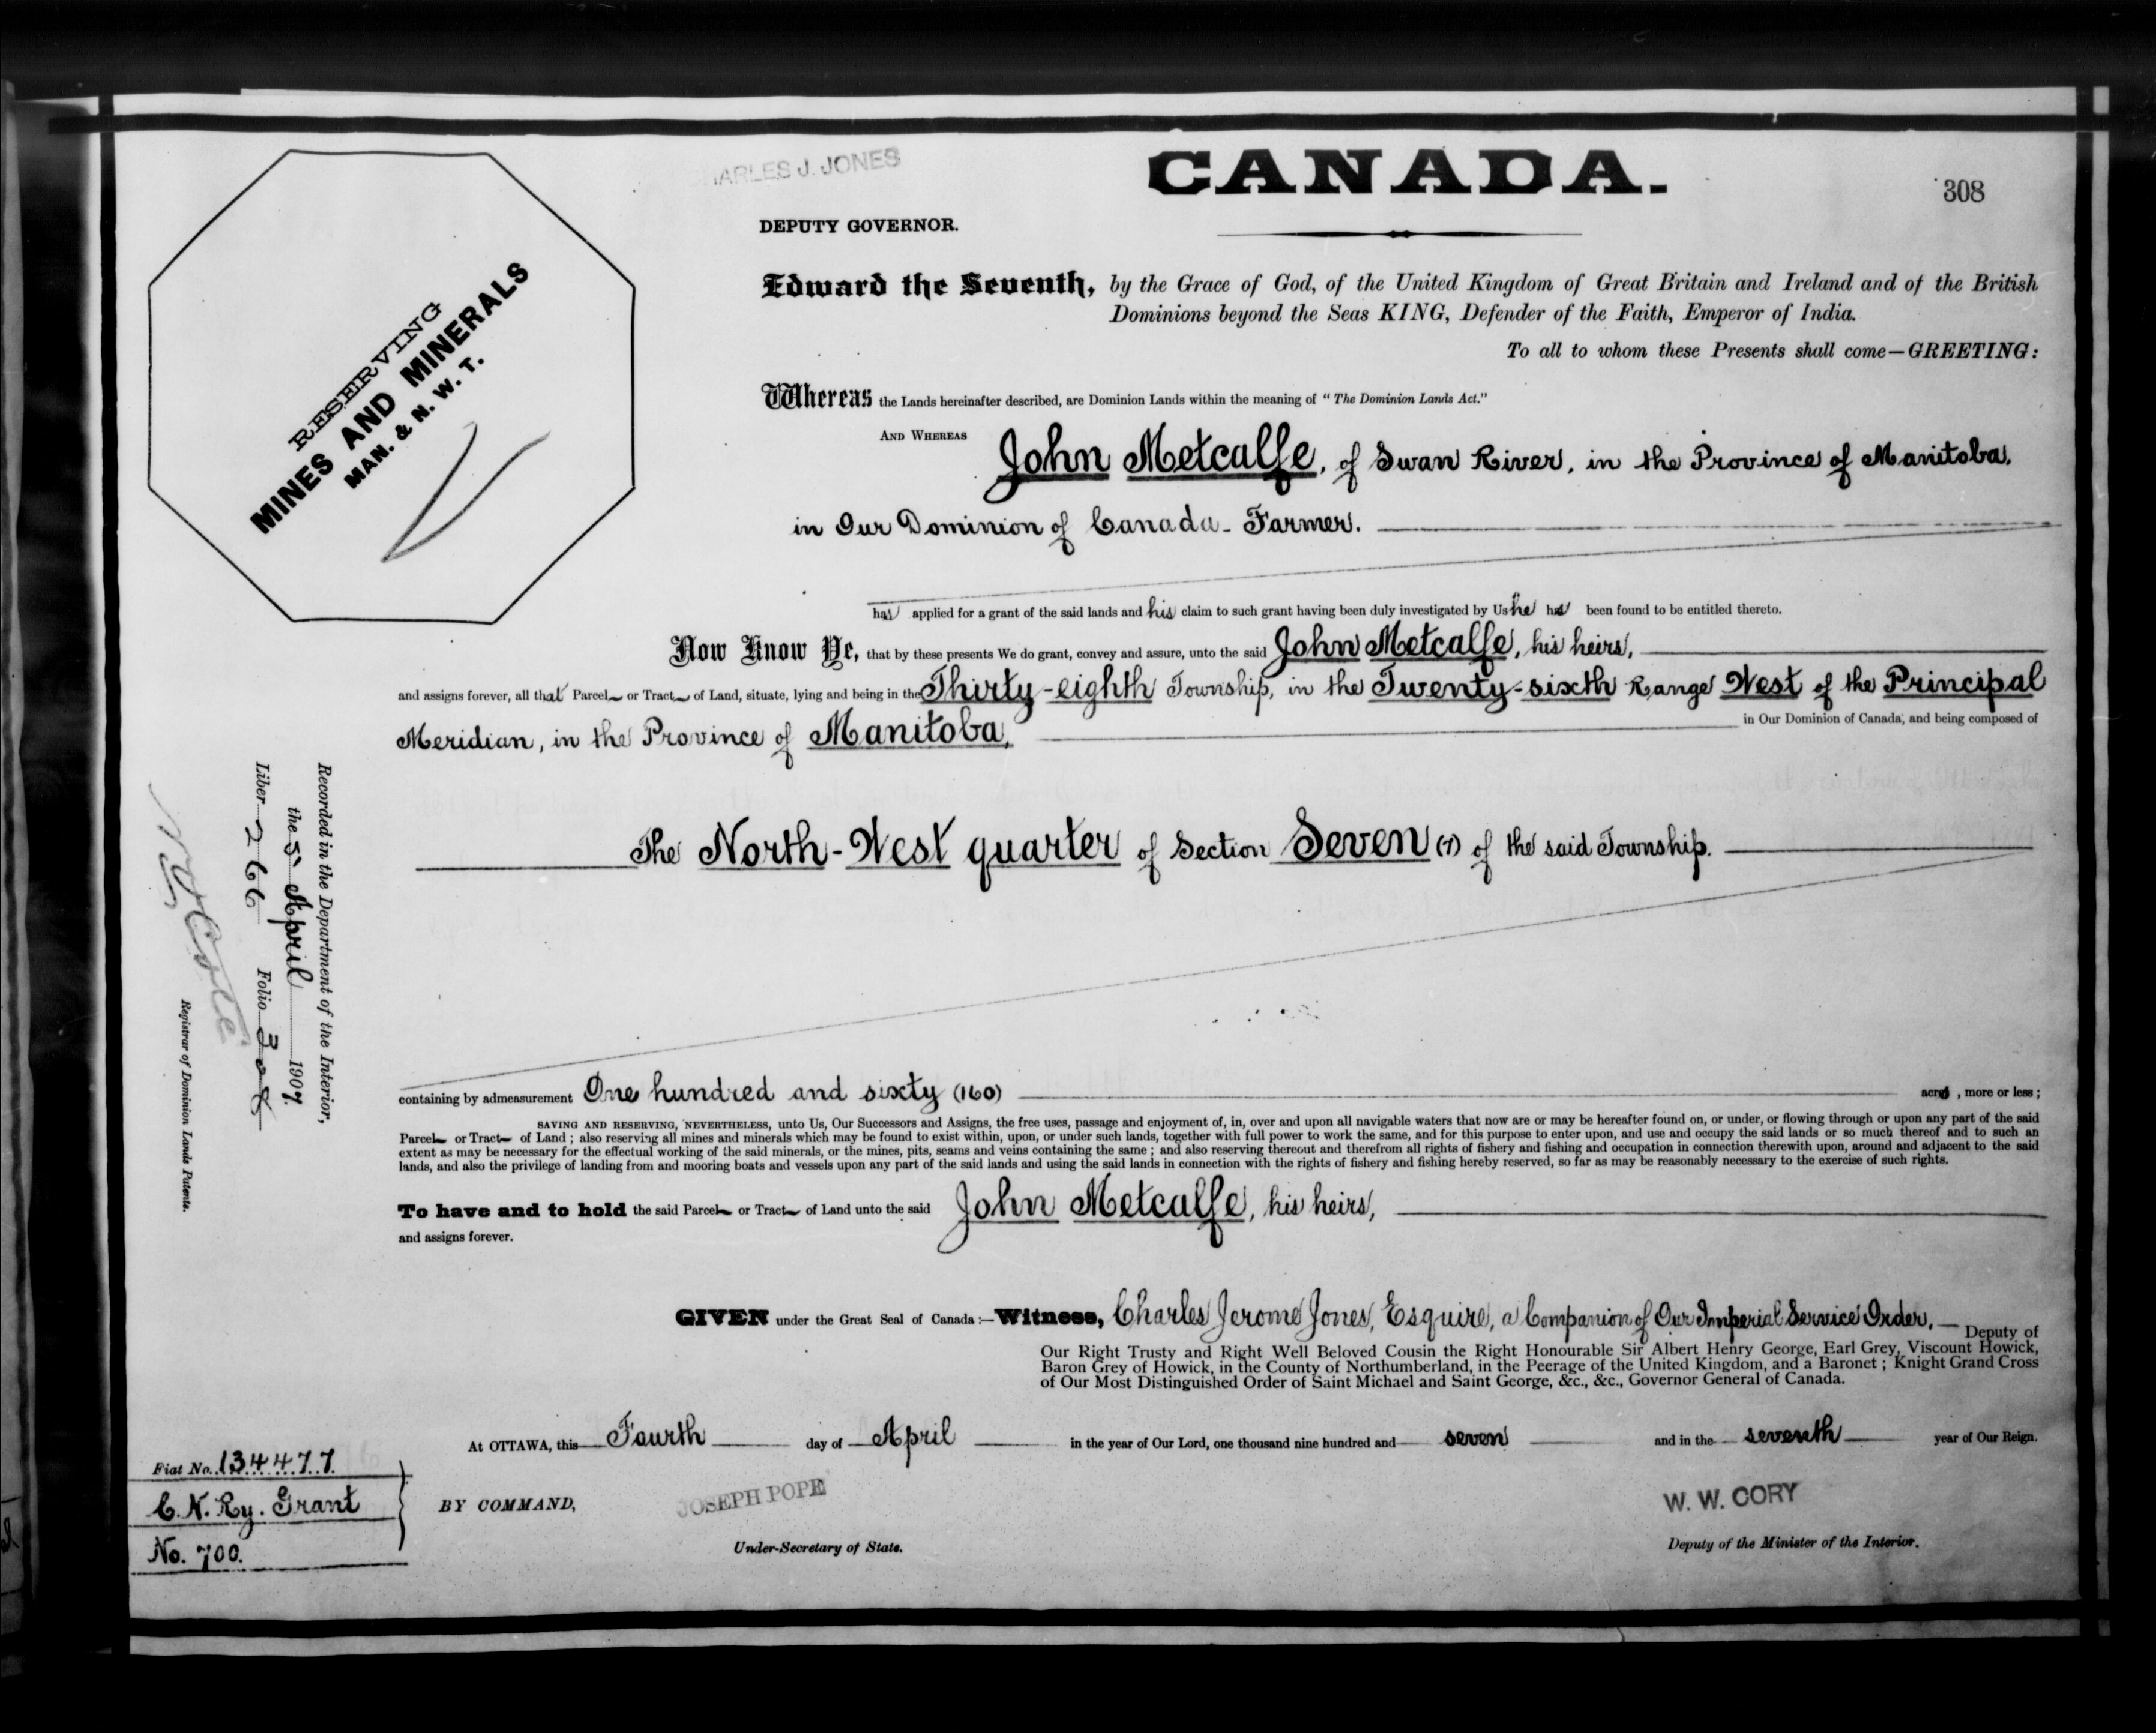 CHARLES J. JONES
CANADA.
308
DEPUTY GOVERNOR.
RESERVING
MINES AND MINERALS
MAN. & N. W. T.
Edward the Seventh, by the Grace of God, of the United Kingdom of Great Britain and Ireland and of the British
Dominions beyond the Seas KING, Defender of the Faith, Emperor of India.
To all to whom these Presents shall come—GREETING:
Whereas the Lands hereinafter described, are Dominion Lands within the meaning of "The Dominion Lands Act."
AND WHEREAS John Metcalfe, of Swan River, in the Province of Manitoba,
in Our Dominion of Canada - Farmer.
has applied for a grant of the said lands and his claim to such grant having been duly investigated by Us he has been found to be entitled thereto.
Now Know Ye, that by these presents We do grant, convey and assure, unto the said John Metcalfe, his heirs,
and assigns forever, all that Parcel or Tract of Land, situate, lying and being in the Thirty-eighth Township, in the Twenty-sixth Range West of the Principal
Meridian, in the Province of Manitoba, in Our Dominion of Canada, and being composed of
The North-West quarter of Section Seven (7) of the said Township.
containing by admeasurement One hundred and sixty (160) acres, more or less;
SAVING AND RESERVING, NEVERTHELESS, unto Us, Our Successors and Assigns, the free uses, passage and enjoyment of, in, over and upon all navigable waters that now are or may be hereafter found on, or under, or flowing through or upon any part of the said
Parcel or Tract of Land; also reserving all mines and minerals which may be found to exist within, upon, or under such lands, together with full power to work the same, and for this purpose to enter upon, and use and occupy the said lands or so much thereof and to such an
extent as may be necessary for the effectual working of the said minerals, or the mines, pits, seams and veins containing the same; and also reserving thereout and therefrom all rights of fishery and fishing and occupation in connection therewith upon, around and adjacent to the said
lands, and also the privilege of landing from and mooring boats and vessels upon any part of the said lands and using the said lands in connection with the rights of fishery and fishing hereby reserved, so far as may be reasonably necessary to the exercise of such rights.
To have and to hold the said Parcel or Tract of Land unto the said John Metcalfe, his heirs,
and assigns forever.
GIVEN under the Great Seal of Canada:—Witness, Charles Jerome Jones, Esquire, a Companion of Our Imperial Service Order, Deputy of
Our Right Trusty and Right Well Beloved Cousin the Right Honourable Sir Albert Henry George, Earl Grey, Viscount Howick,
Baron Grey of Howick, in the County of Northumberland, in the Peerage of the United Kingdom, and a Baronet; Knight Grand Cross
of Our Most Distinguished Order of Saint Michael and Saint George, &c., &c., Governor General of Canada.
At OTTAWA, this Fourth day of April in the year of Our Lord, one thousand nine hundred and seven and in the seventh year of Our Reign.
BY COMMAND,
JOSEPH POPE
Under-Secretary of State.
W. W. CORY
Deputy of the Minister of the Interior.
Fiat No. 134477
C. N. Ry. Grant
No. 700.
Recorded in the Department of the Interior,
the 5 April 1907
Liber 266 Folio 308
Registrar of Dominion Lands Patents.